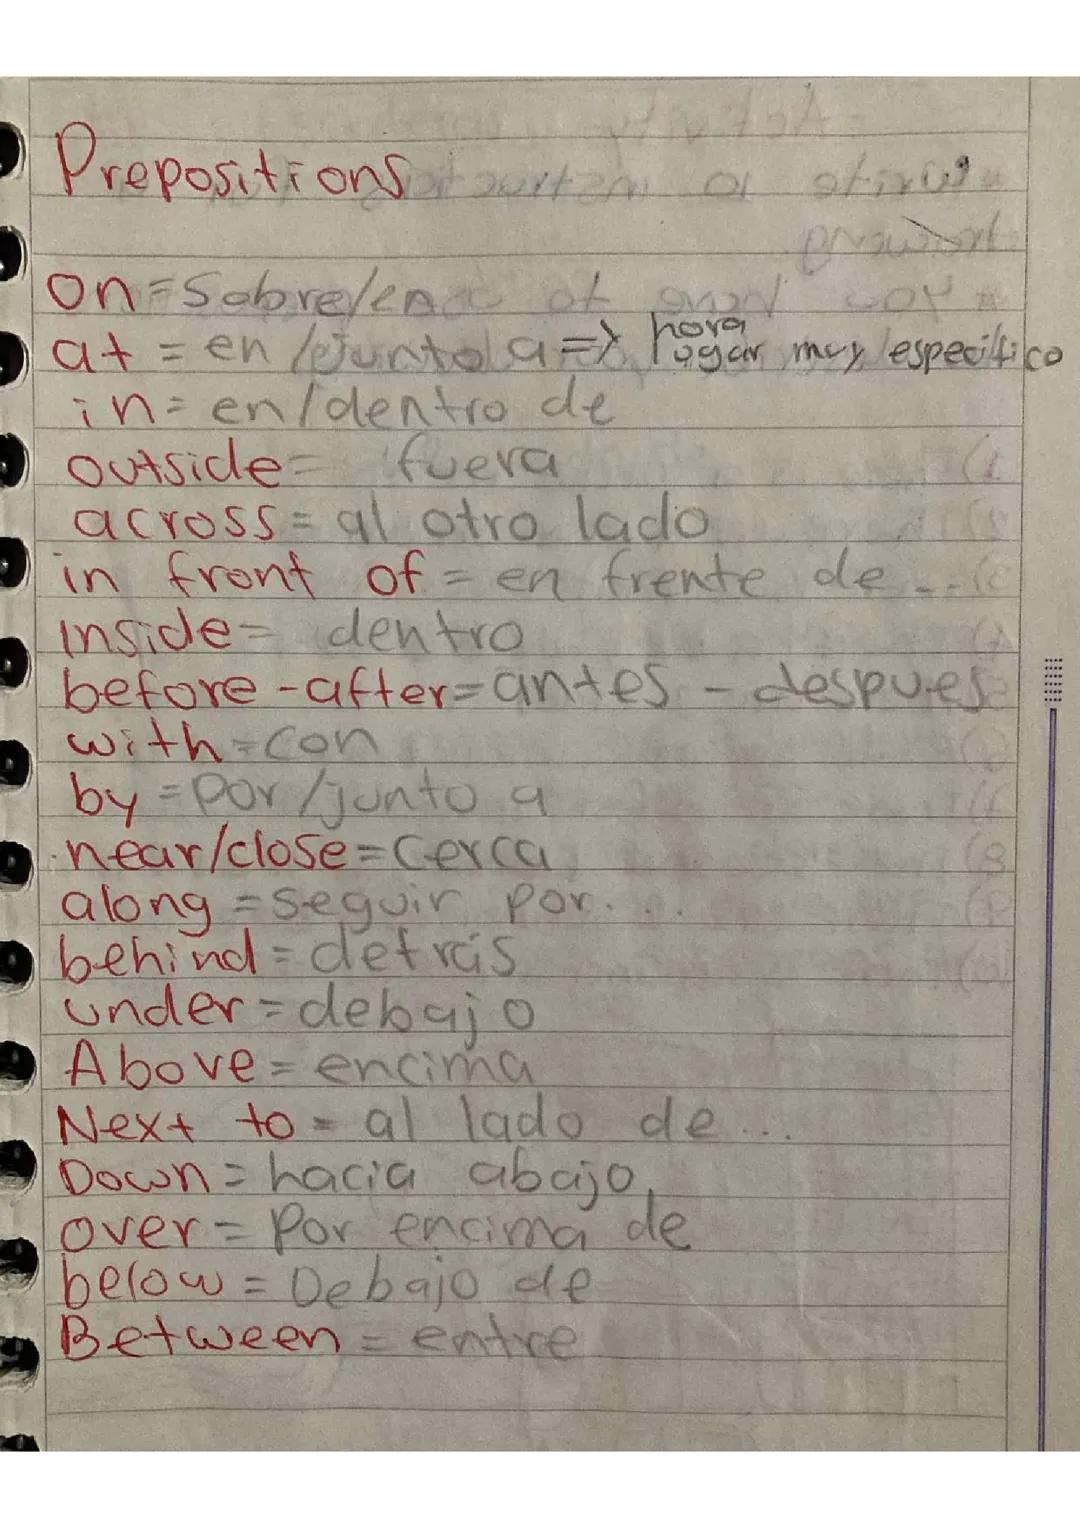 Prepositions
on = Sobre/en
at = en /junto a => hora lugar muy específico
in = en/dentro de
outside = fuera
across = al otro lado
in front of = en frente de ...
inside = dentro
before - after = antes - despues
with = con
by = por /junto a
near/close = Cerca
along = seguir por...
behind = detrás
under = debajo
Above = encima
Next to = al lado de ...
Down = hacia abajo
over = Por encima de
below = Debajo de
Between = entre